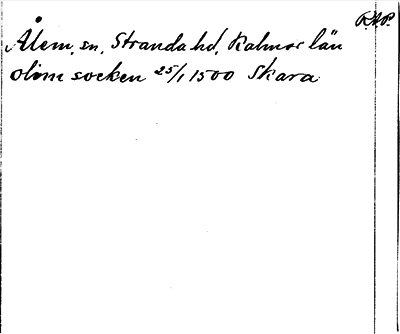 R.A.P.
Ålem, sn, Stranda hd, Kalmar län
olem socken 25/1 1500 Skara